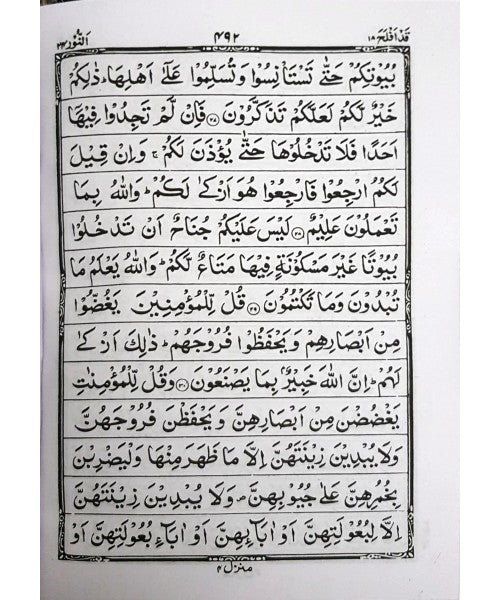 قَدْ اَفْلَحَ ١٨ ۴۹۲ اَلنُّوْر ٢۴
بُيُوْتِكُمْ حَتّٰى تَسْتَاْنِسُوْا وَتُسَلِّمُوْا عَلٰٓى اَهْلِهَا ؕ ذٰلِكُمْ
خَيْرٌ لَّكُمْ لَعَلَّكُمْ تَذَكَّرُوْنَ ﴿۲۷﴾ فَاِنْ لَّمْ تَجِدُوْا فِيْهَآ
اَحَدًا فَلَا تَدْخُلُوْهَا حَتّٰى يُؤْذَنَ لَكُمْ ۚ وَاِنْ قِيْلَ
لَكُمُ ارْجِعُوْا فَارْجِعُوْا هُوَ اَزْكٰى لَكُمْ ؕ وَاللّٰهُ بِمَا
تَعْمَلُوْنَ عَلِيْمٌ ﴿۲۸﴾ لَيْسَ عَلَيْكُمْ جُنَاحٌ اَنْ تَدْخُلُوْا
بُيُوْتًا غَيْرَ مَسْكُوْنَةٍ فِيْهَا مَتَاعٌ لَّكُمْ ؕ وَاللّٰهُ يَعْلَمُ مَا
تُبْدُوْنَ وَمَا تَكْتُمُوْنَ ﴿۲۹﴾ قُلْ لِّلْمُؤْمِنِيْنَ يَغُضُّوْا
مِنْ اَبْصَارِهِمْ وَيَحْفَظُوْا فُرُوْجَهُمْ ؕ ذٰلِكَ اَزْكٰى
لَهُمْ ؕ اِنَّ اللّٰهَ خَبِيْرٌۢ بِمَا يَصْنَعُوْنَ ﴿۳۰﴾ وَقُلْ لِّلْمُؤْمِنٰتِ
يَغْضُضْنَ مِنْ اَبْصَارِهِنَّ وَيَحْفَظْنَ فُرُوْجَهُنَّ
وَلَا يُبْدِيْنَ زِيْنَتَهُنَّ اِلَّا مَا ظَهَرَ مِنْهَا وَلْيَضْرِبْنَ
بِخُمُرِهِنَّ عَلٰى جُيُوْبِهِنَّ ؕ وَلَا يُبْدِيْنَ زِيْنَتَهُنَّ
اِلَّا لِبُعُوْلَتِهِنَّ اَوْ اٰبَآئِهِنَّ اَوْ اٰبَآءِ بُعُوْلَتِهِنَّ اَوْ
منزل ۴